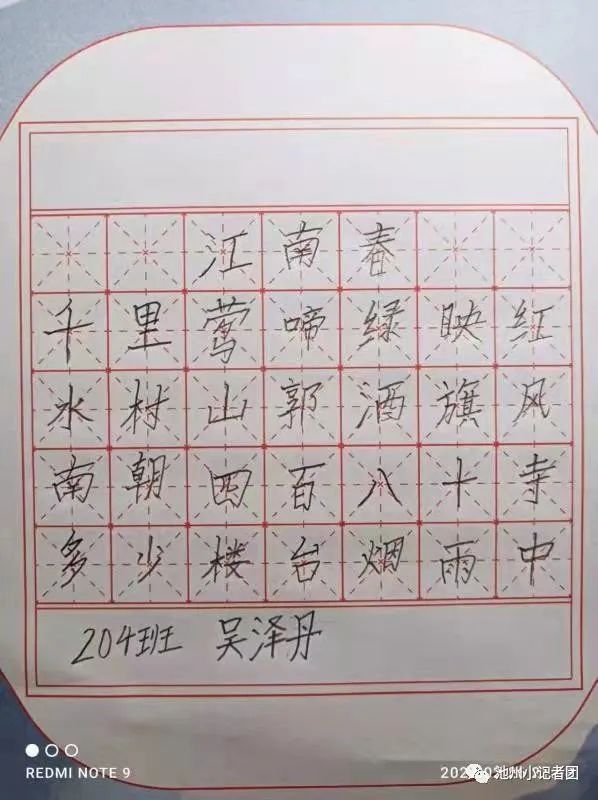 江南春
千里莺啼绿映红
水村山郭酒旗风
南朝四百八十寺
多少楼台烟雨中
204班 吴泽丹
REDMI NOTE 9
池州小记者团